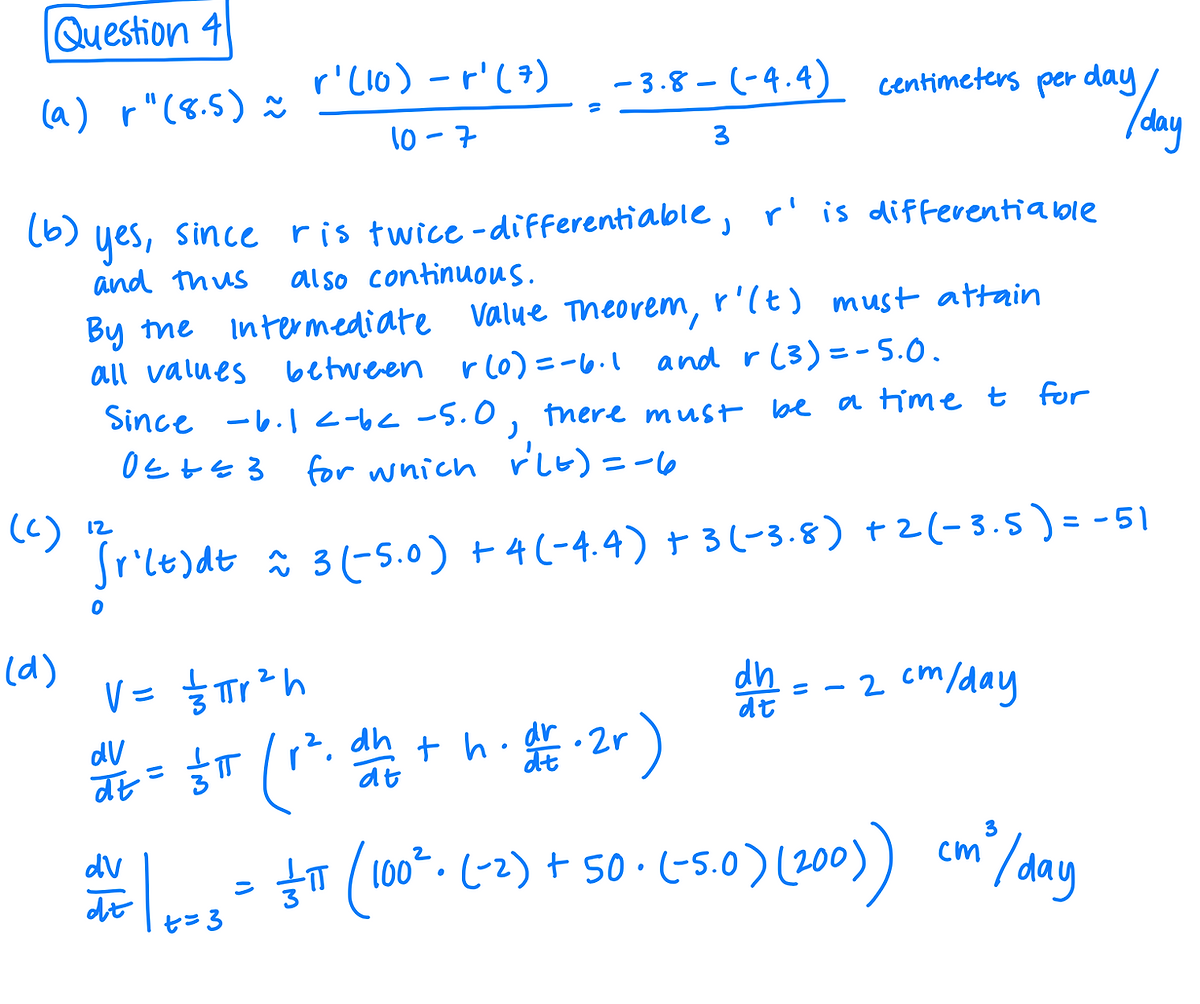 Question 4
(a) r"(8.5) ≈ (r'(10) − r'(7))/(10 − 7) = (−3.8 − (−4.4))/3 centimeters per day/day
(b) yes, since r is twice-differentiable, r' is differentiable
and thus also continuous.
By the Intermediate Value Theorem, r'(t) must attain
all values between r(0) = −6.1 and r(3) = −5.0.
Since −6.1 < −6 < −5.0, there must be a time t for
0 ≤ t ≤ 3 for which r'(t) = −6
(c) ∫₀¹² r'(t)dt ≈ 3(−5.0) + 4(−4.4) + 3(−3.8) + 2(−3.5) = −51
(d) V = 1/3 πr²h dh/dt = −2 cm/day
dV/dt = 1/3 π (r² · dh/dt + h · dr/dt · 2r)
dV/dt |t=3 = 1/3 π (100² · (−2) + 50 · (−5.0)(200)) cm³/day